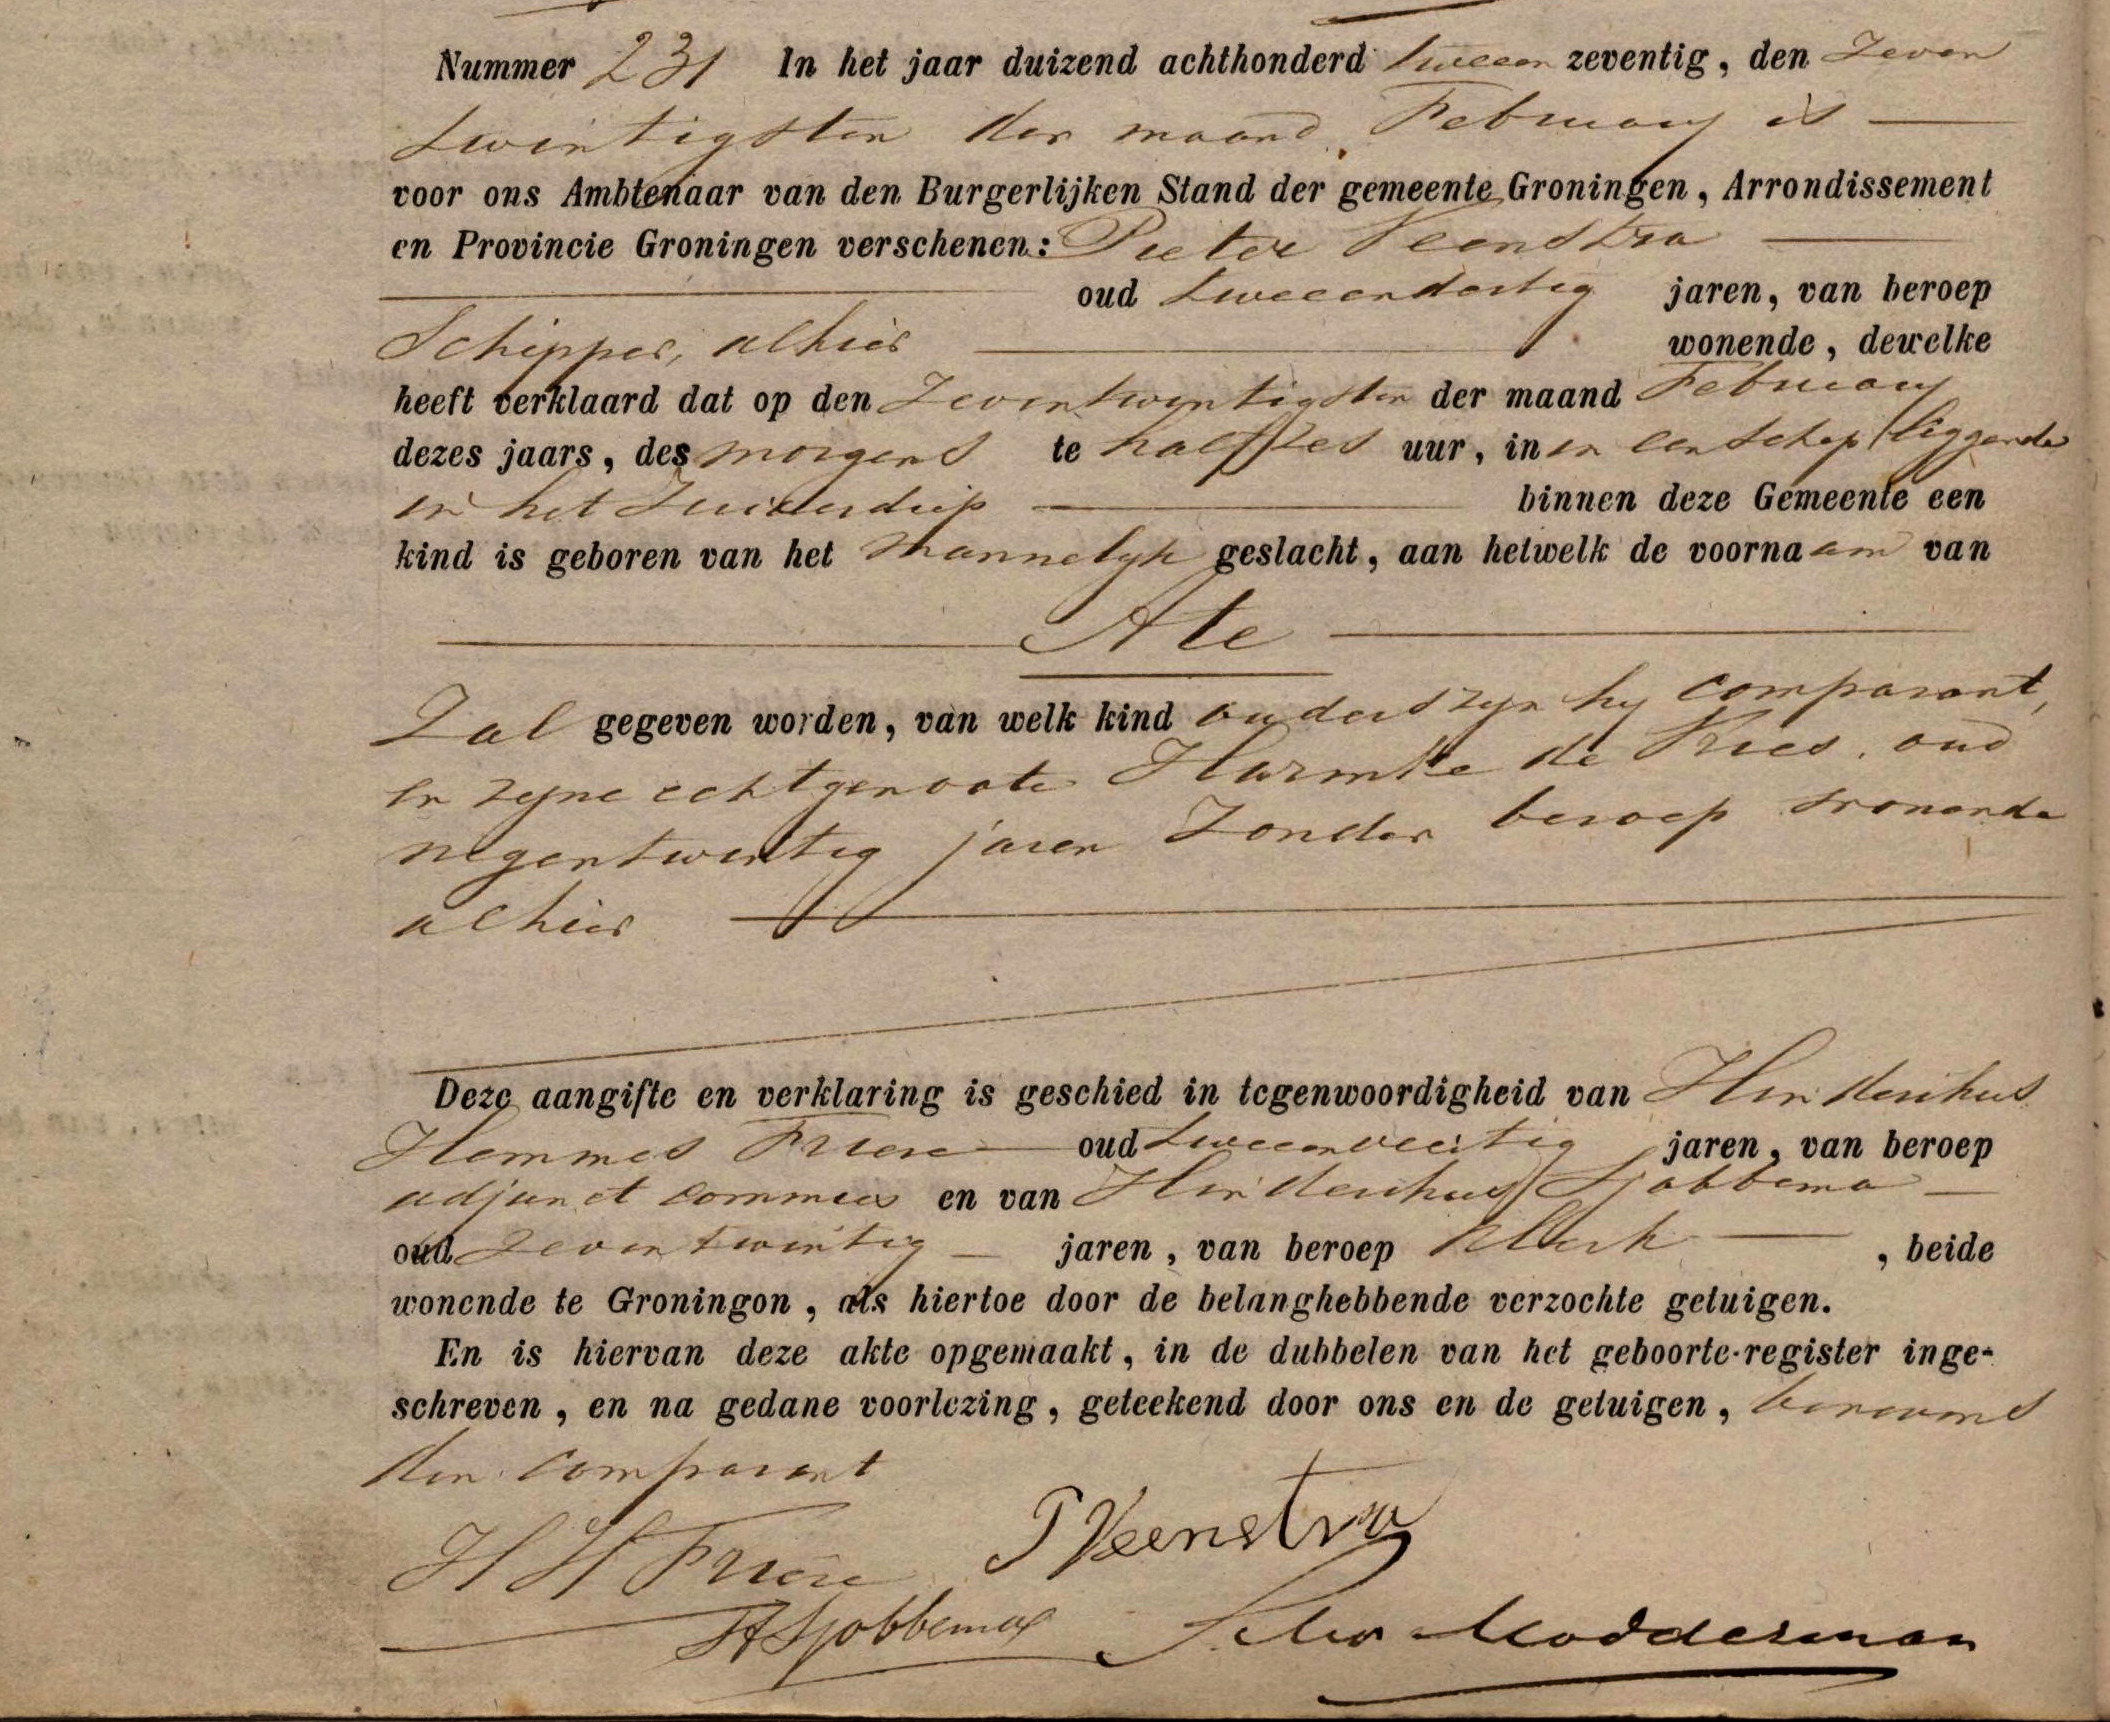 Nummer 231 In het jaar duizend achthonderd tweeen zeventig, den Zeven
twintigsten der maand February is
voor ons Ambtenaar van den Burgerlijken Stand der gemeente Groningen, Arrondissement
en Provincie Groningen verschenen: Pieter Veenstra
oud tweeendertig jaren, van beroep
Schipper, alhier wonende, dewelke
heeft verklaard dat op den Zeventwintigsten der maand February
dezes jaars, des morgens te half zes uur, in in een schip liggende
in het Zuiderdiep binnen deze Gemeente een
kind is geboren van het mannelyk geslacht, aan hetwelk de voornaam van
Ate
Zal gegeven worden, van welk kind ouders zyn hy comparant,
en zyne echtgenoote Harmke de Vries, oud
negentwintig jaren Zonder beroep wonende
alhier
Deze aangifte en verklaring is geschied in tegenwoordigheid van Hinderikus
Hemmes Friese oud tweeenveertig jaren, van beroep
adjunct commies en van Hinderikus Sjabbema
oud Zeventwintig jaren, van beroep klerk, beide
wonende te Groningon, als hiertoe door de belanghebbende verzochte getuigen.
En is hiervan deze akte opgemaakt, in de dubbelen van het geboorte-register inge-
schreven, en na gedane voorlezing, geteekend door ons en de getuigen, benevens
den comparant
H H Friese P Veenstra
H Sjobbema Modderman